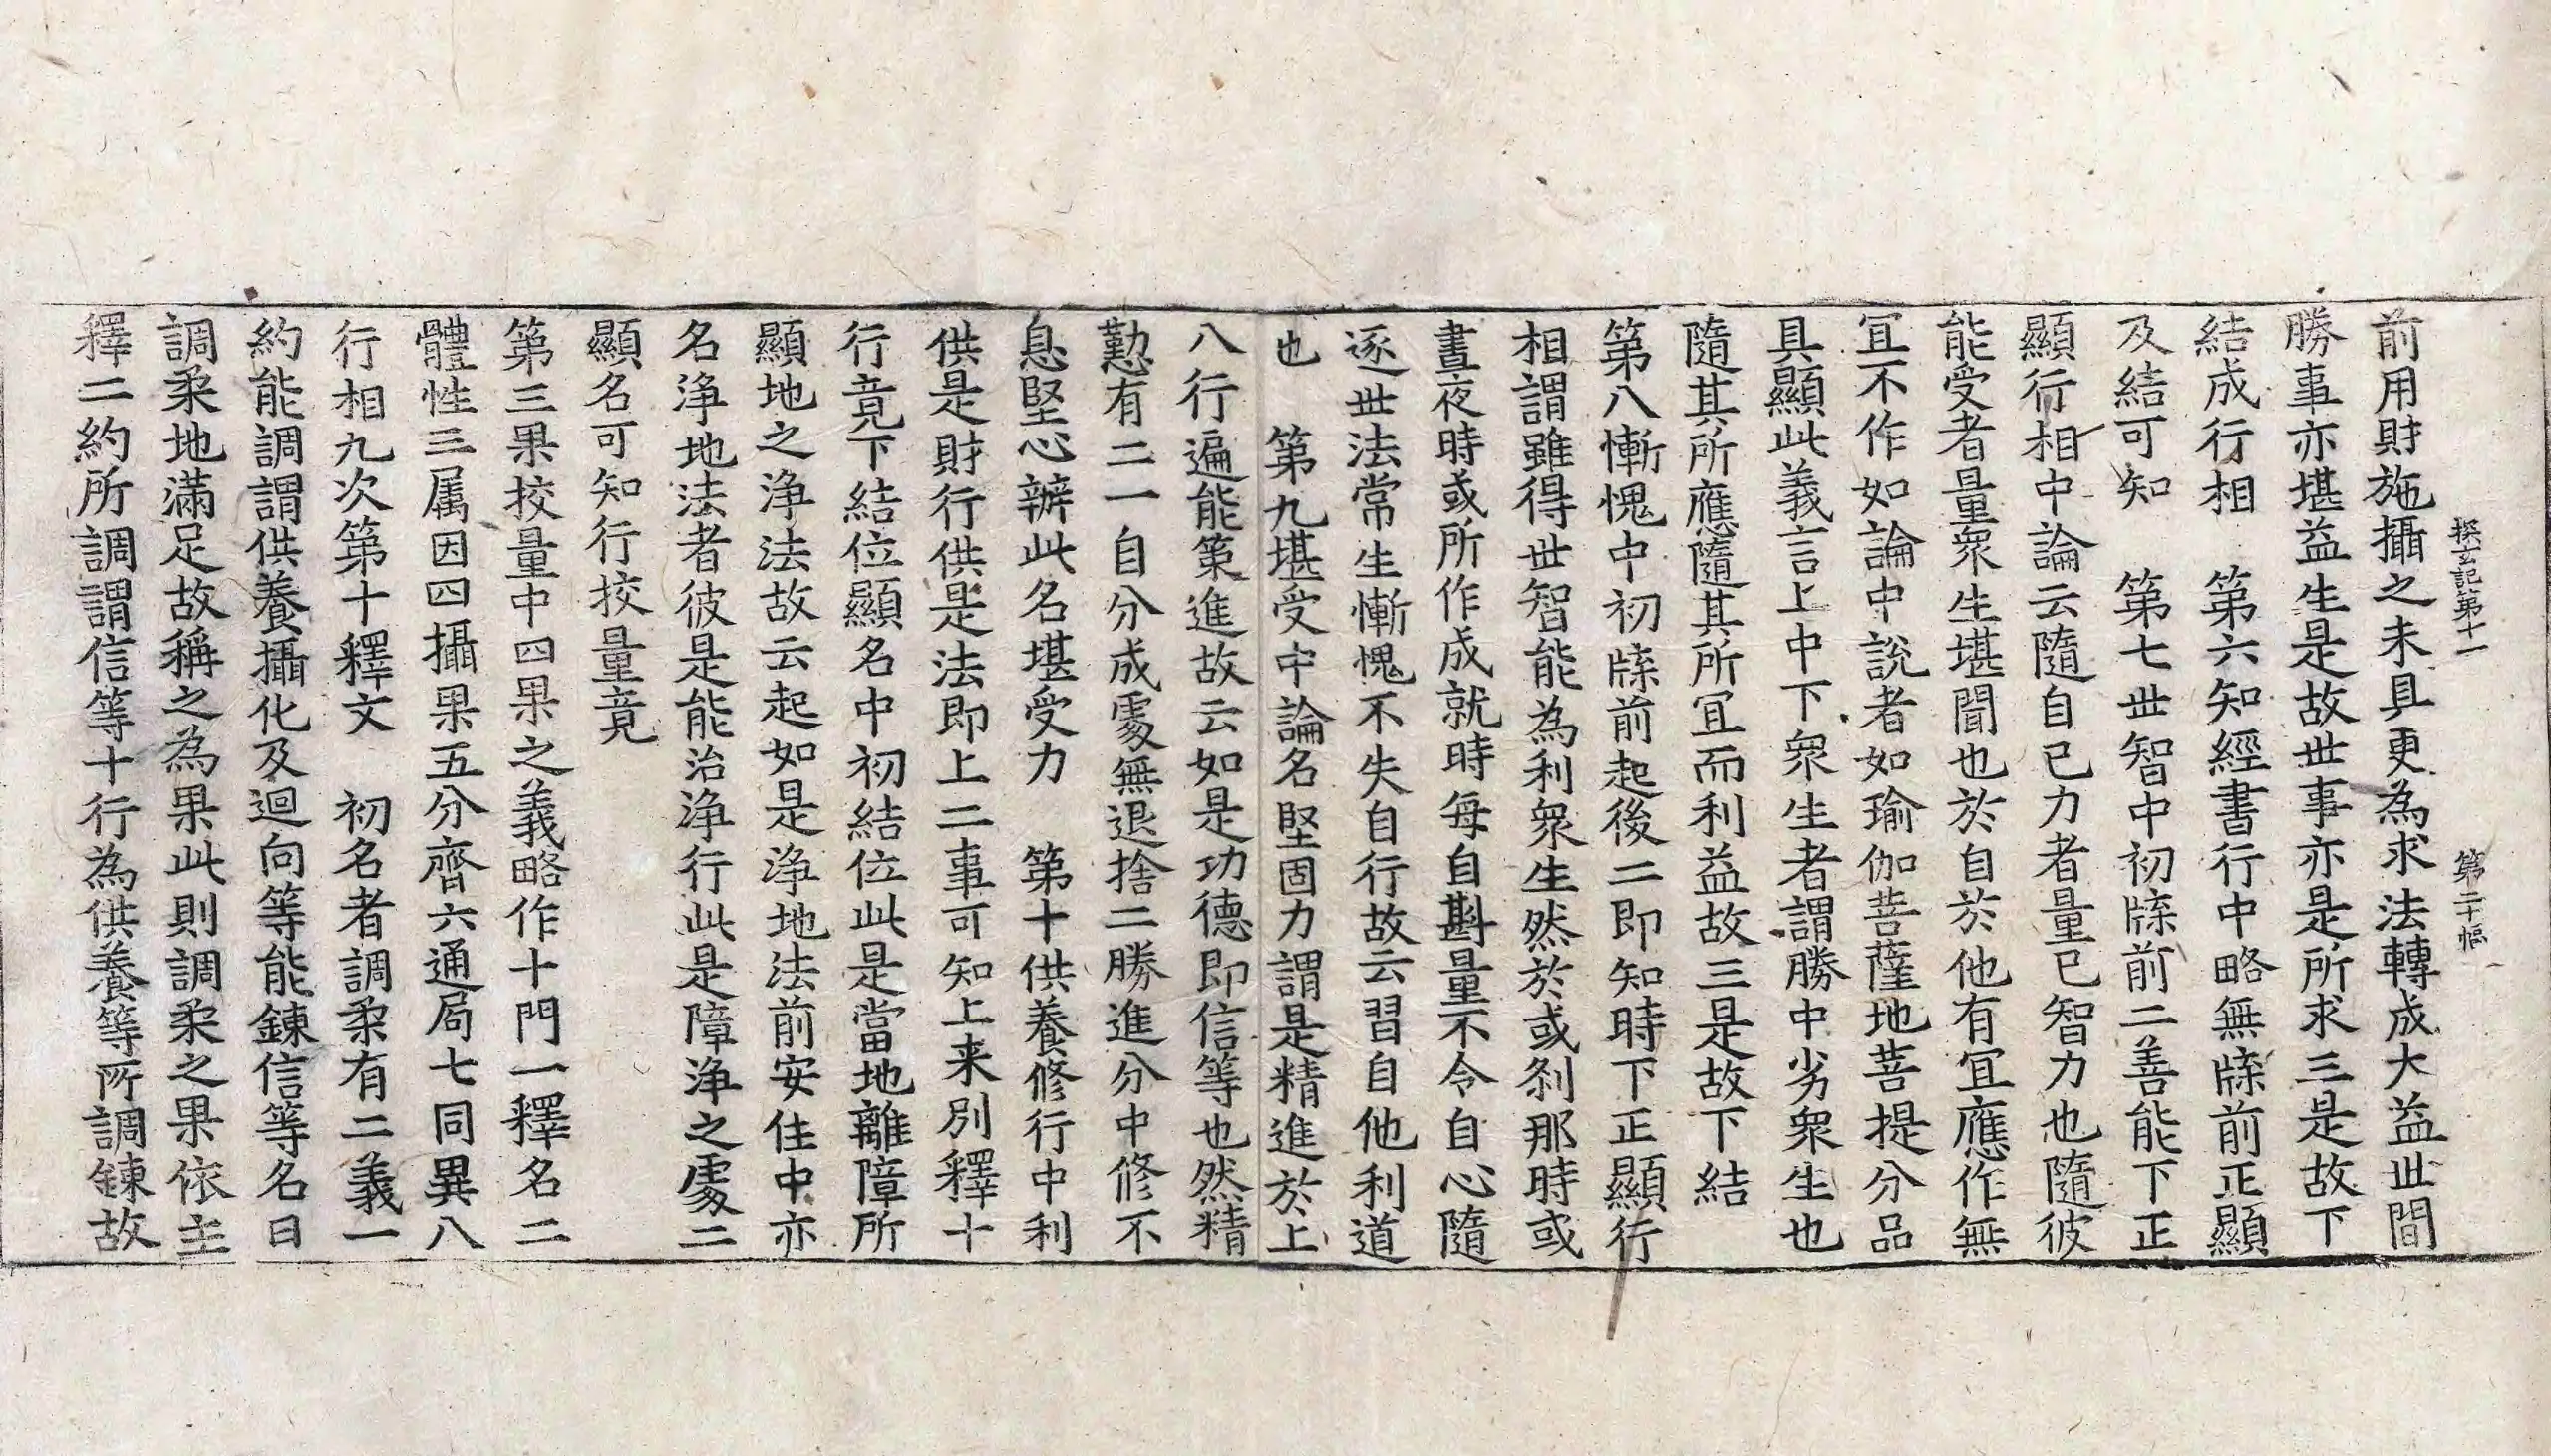 探玄記第十一　第二十幅
前用財施攝之未具更為求法轉成大益世間
勝事亦堪益生是故世事亦是所求三是故下
結成行相　第六知經書行中略無牒前正顯
及結可知　第七世智中初牒前二善能下正
顯行相中論云隨自已力者量已智力也隨彼
能受者量衆生堪聞也於自於他有冝應作無
冝不作如論中說者如瑜伽菩薩地菩提分品
具顯此義言上中下衆生者謂勝中劣衆生也
隨其所應隨其所冝而利益故三是故下結
第八慚愧中初牒前起後二即知時下正顯行
相謂雖得世智能為利衆生然於或刹那時或
晝夜時或所作成就時每自斟量不令自心隨
逐世法常生慚愧不失自行故云習自他利道
也　第九堪受中論名堅固力謂是精進於上
八行遍能策進故云如是功德即信等也然精
懃有二一自分成處無退捨二勝進分中修不
息堅心辦此名堪受力　第十供養修行中利
供是財行供是法即上二事可知上来別釋十
行竟下結位顯名中初結位此是當地離障所
顯地之淨法故云起如是淨地法前安住中亦
名淨地法者彼是能治淨行此是障淨之處二
顯名可知行挍量竟
第三果挍量中四果之義略作十門一釋名二
體性三属因四攝果五分齊六通局七同異八
行相九次第十釋文　初名者調柔有二義一
約能調謂供養攝化及迴向等能鍊信等名曰
調柔地滿足故稱之為果此則調柔之果依主
釋二約所調謂信等十行為供養等所調鍊故